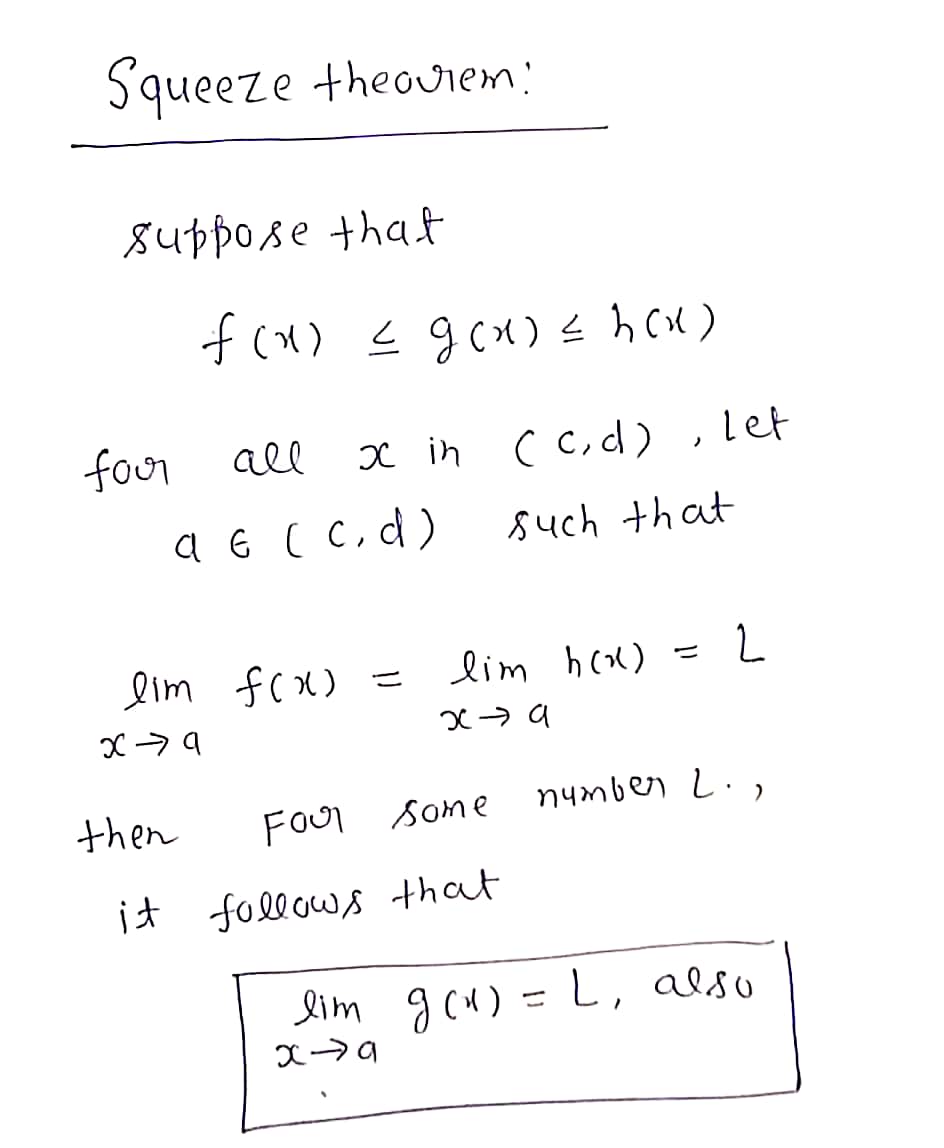 Squeeze theorem:
suppose that
f(x) ≤ g(x) ≤ h(x)
for all x in (c,d), let
a ∈ (c,d) such that
lim f(x) = lim h(x) = L
x→a x→a
then For some number L.,
it follows that
lim g(x) = L, also
x→a